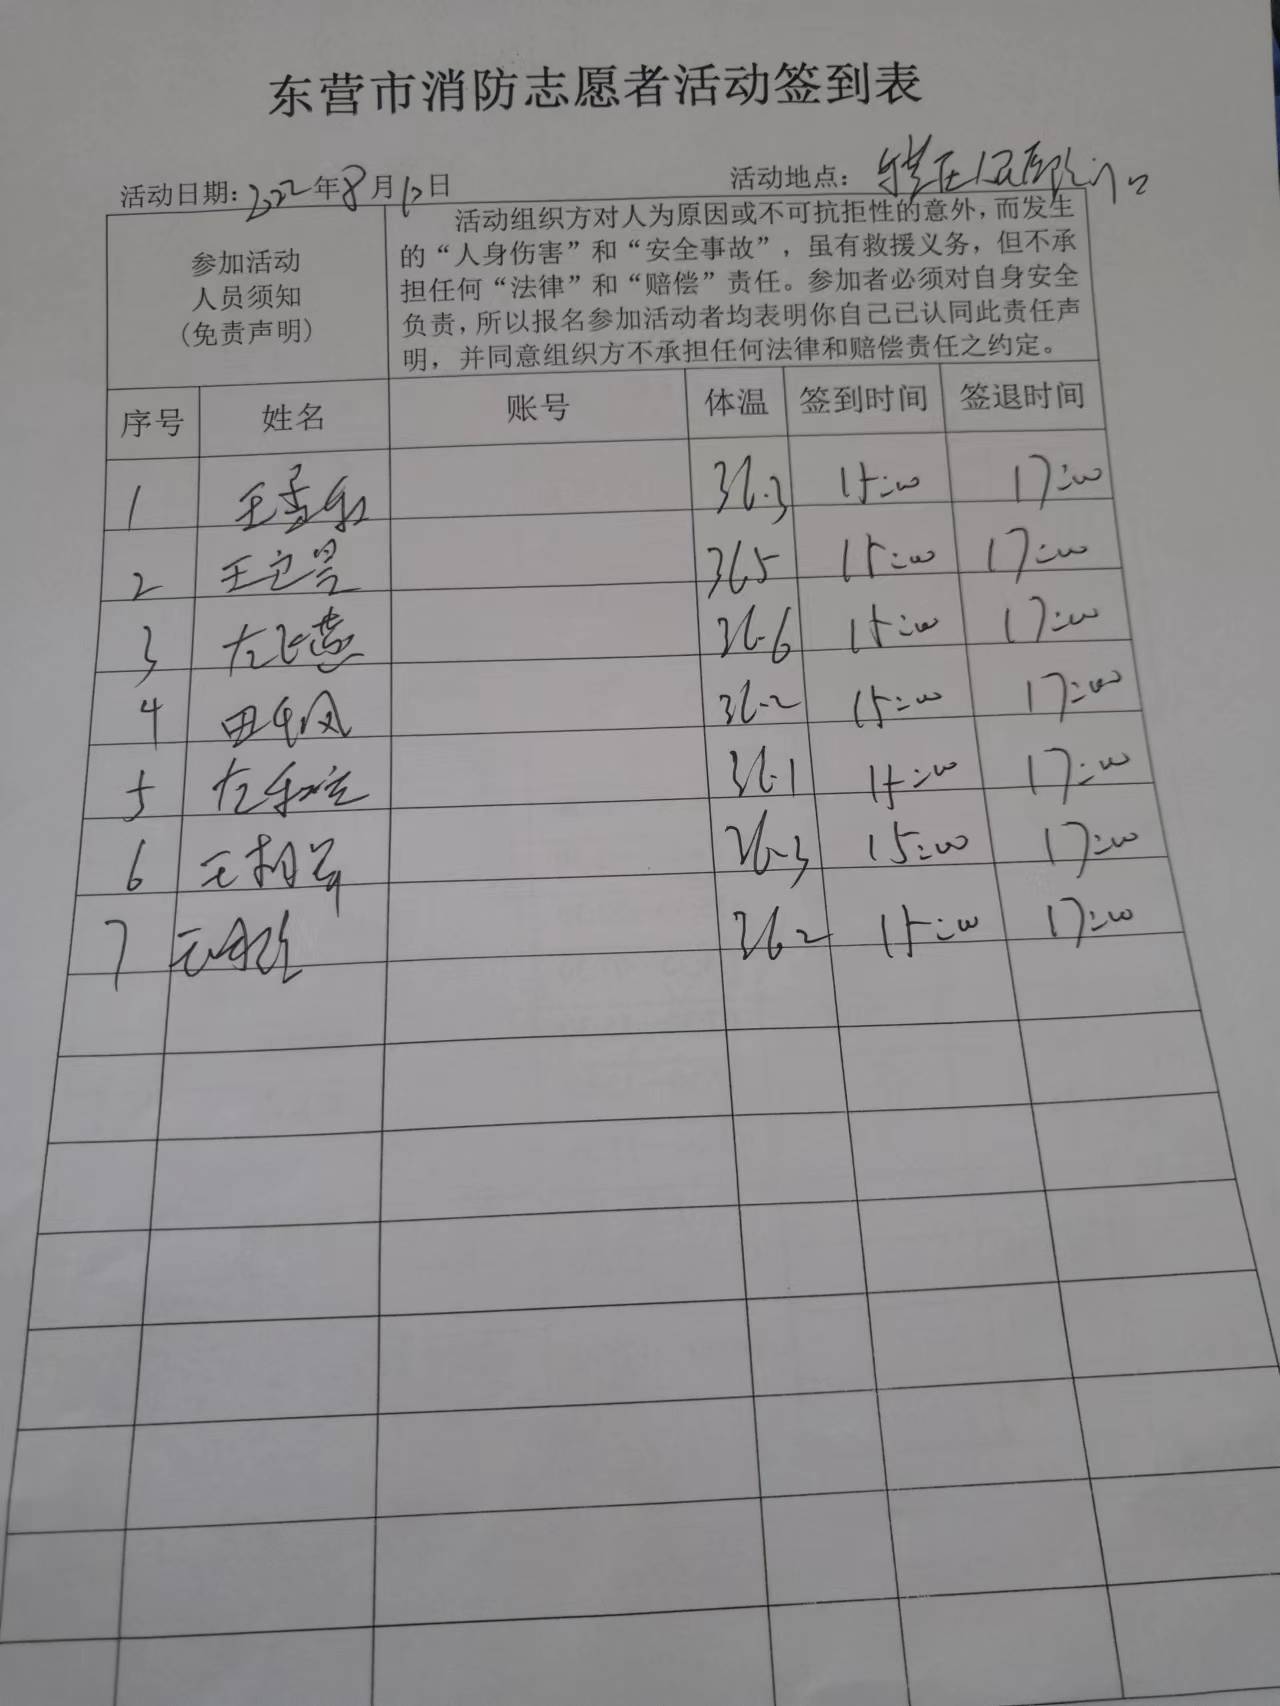 东营市消防志愿者活动签到表
活动日期:2022年8月10日 活动地点:
参加活动
人员须知
(免责声明)
活动组织方对人为原因或不可抗拒性的意外,而发生
的“人身伤害”和“安全事故”,虽有救援义务,但不承
担任何“法律”和“赔偿”责任。参加者必须对自身安全
负责,所以报名参加活动者均表明你自己已认同此责任声
明,并同意组织方不承担任何法律和赔偿责任之约定。
序号 姓名 账号 体温 签到时间 签退时间
1 王孟和 36.3 15:00 17:00
2 王之昱 36.5 15:00 17:00
3 左飞燕 36.6 15:00 17:00
4 田 凤 36.2 15:00 17:00
5 左 36.1 15:00 17:00
6 王相 36.3 15:00 17:00
7 王 36.2 15:00 17:00